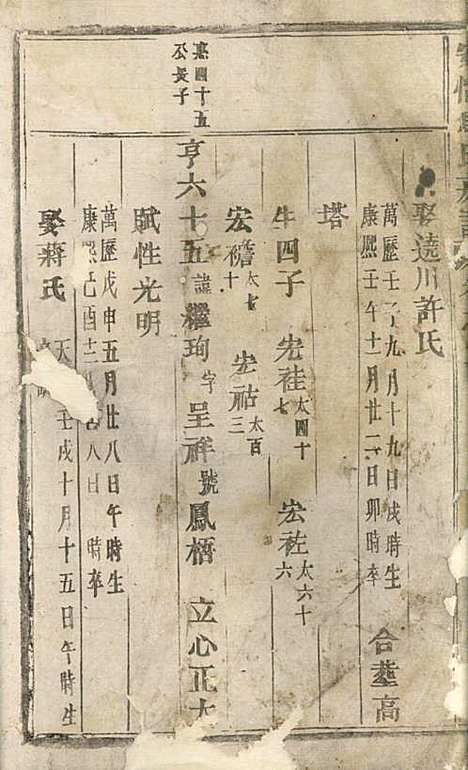 娶遶川許氏
萬歷壬子九月十九日戌時生
康熙壬午十一月廿二日卯時卒
合塟高
塔
生四子 宏祛太四十七 宏祐太六十六
宏檐太七十 宏祜太百三
熹四十五
公長子
亨六十五諱繼珣字呈祥號鳳梧 立心正大
賦性光明
萬歷戊申五月廿八日午時生
康熙己酉十二月 八日 時卒
娶蔣氏
天 壬戌十月十五日午時生